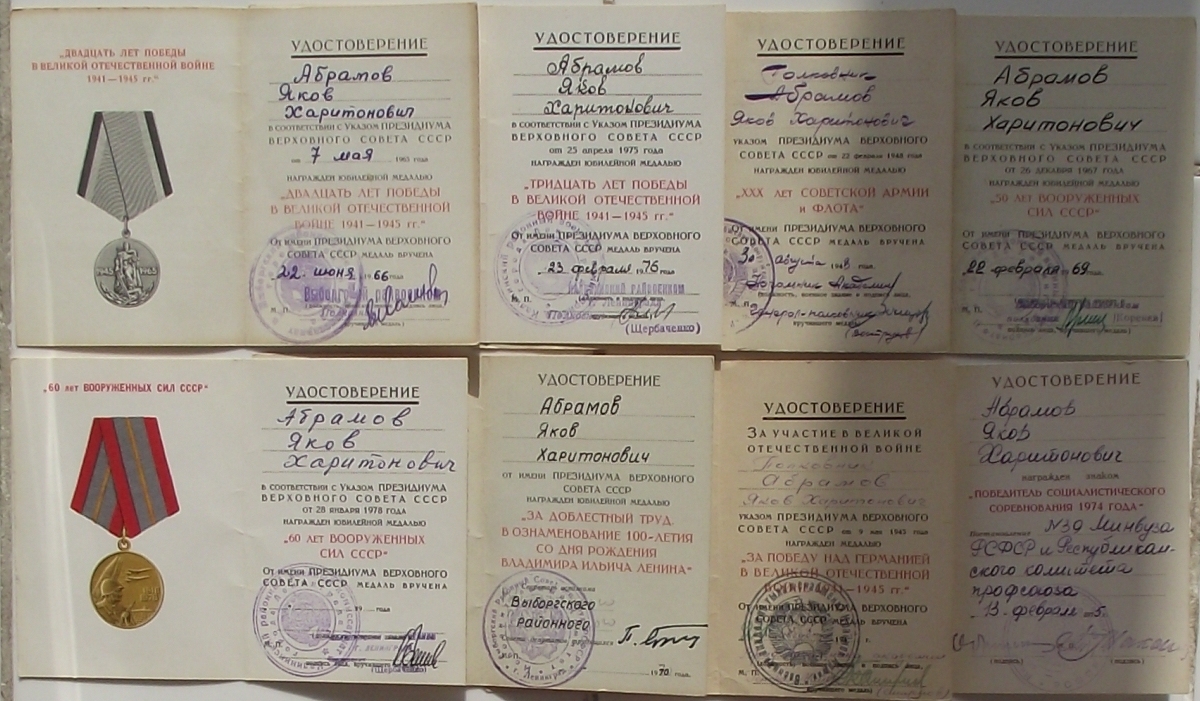 „ДВАДЦАТЬ ЛЕТ ПОБЕДЫ
В ВЕЛИКОЙ ОТЕЧЕСТВЕННОЙ ВОЙНЕ
1941—1945 гг.“
1945 1965
УДОСТОВЕРЕНИЕ
Абрамов
Яков
Харитонович
В СООТВЕТСТВИИ С УКАЗОМ ПРЕЗИДИУМА
ВЕРХОВНОГО СОВЕТА СССР
от 7 мая 1965 года
НАГРАЖДЕН ЮБИЛЕЙНОЙ МЕДАЛЬЮ
„ДВАДЦАТЬ ЛЕТ ПОБЕДЫ
В ВЕЛИКОЙ ОТЕЧЕСТВЕННОЙ
ВОЙНЕ 1941—1945 гг.“
От имени ПРЕЗИДИУМА ВЕРХОВНОГО
СОВЕТА СССР МЕДАЛЬ ВРУЧЕНА
22. июня 1966 года
М. П.
УДОСТОВЕРЕНИЕ
Абрамов
Яков
Харитонович
В СООТВЕТСТВИИ С УКАЗОМ ПРЕЗИДИУМА
ВЕРХОВНОГО СОВЕТА СССР
от 25 апреля 1975 года
НАГРАЖДЕН ЮБИЛЕЙНОЙ МЕДАЛЬЮ
„ТРИДЦАТЬ ЛЕТ ПОБЕДЫ
В ВЕЛИКОЙ ОТЕЧЕСТВЕННОЙ
ВОЙНЕ 1941—1945 гг.“
От имени ПРЕЗИДИУМА ВЕРХОВНОГО
СОВЕТА СССР МЕДАЛЬ ВРУЧЕНА
23 февраля 1976 года
М. П.
(Щербаченко)
УДОСТОВЕРЕНИЕ
Полковник
Абрамов
Яков Харитонович
УКАЗОМ ПРЕЗИДИУМА ВЕРХОВНОГО
СОВЕТА СССР от 22 февраля 1948 года
НАГРАЖДЕН ЮБИЛЕЙНОЙ МЕДАЛЬЮ
„XXX ЛЕТ СОВЕТСКОЙ АРМИИ
И ФЛОТА“
От имени ПРЕЗИДИУМА ВЕРХОВНОГО
СОВЕТА СССР МЕДАЛЬ ВРУЧЕНА
30 августа 1948 года
М. П.
УДОСТОВЕРЕНИЕ
Абрамов
Яков
Харитонович
В СООТВЕТСТВИИ С УКАЗОМ ПРЕЗИДИУМА
ВЕРХОВНОГО СОВЕТА СССР
ОТ 26 ДЕКАБРЯ 1967 ГОДА
НАГРАЖДЕН ЮБИЛЕЙНОЙ МЕДАЛЬЮ
„50 ЛЕТ ВООРУЖЕННЫХ
СИЛ СССР“
От имени ПРЕЗИДИУМА ВЕРХОВНОГО
СОВЕТА СССР МЕДАЛЬ ВРУЧЕНА
22 февраля 1969 г.
М. П.
„60 ЛЕТ ВООРУЖЕННЫХ СИЛ СССР“
УДОСТОВЕРЕНИЕ
Абрамов
Яков
Харитонович
В СООТВЕТСТВИИ С УКАЗОМ ПРЕЗИДИУМА
ВЕРХОВНОГО СОВЕТА СССР
ОТ 28 ЯНВАРЯ 1978 ГОДА
НАГРАЖДЕН ЮБИЛЕЙНОЙ МЕДАЛЬЮ
„60 ЛЕТ ВООРУЖЕННЫХ
СИЛ СССР“
От имени ПРЕЗИДИУМА ВЕРХОВНОГО
СОВЕТА СССР МЕДАЛЬ ВРУЧЕНА
19 года
М. П.
(Щербаченко)
УДОСТОВЕРЕНИЕ
Абрамов
Яков
Харитонович
ОТ ИМЕНИ ПРЕЗИДИУМА ВЕРХОВНОГО
СОВЕТА СССР
НАГРАЖДЕН ЮБИЛЕЙНОЙ МЕДАЛЬЮ
„ЗА ДОБЛЕСТНЫЙ ТРУД.
В ОЗНАМЕНОВАНИЕ 100-ЛЕТИЯ
СО ДНЯ РОЖДЕНИЯ
ВЛАДИМИРА ИЛЬИЧА ЛЕНИНА“
Выборгского
районного
М. П.
1970 г.
УДОСТОВЕРЕНИЕ
ЗА УЧАСТИЕ В ВЕЛИКОЙ
ОТЕЧЕСТВЕННОЙ ВОЙНЕ
Полковник
Абрамов
Яков Харитонович
УКАЗОМ ПРЕЗИДИУМА ВЕРХОВНОГО
СОВЕТА СССР от 9 мая 1945 года
НАГРАЖДЕН МЕДАЛЬЮ
„ЗА ПОБЕДУ НАД ГЕРМАНИЕЙ
В ВЕЛИКОЙ ОТЕЧЕСТВЕННОЙ
ВОЙНЕ 1941—1945 гг.“
От имени ПРЕЗИДИУМА ВЕРХОВНОГО
СОВЕТА СССР МЕДАЛЬ ВРУЧЕНА
М. П.
УДОСТОВЕРЕНИЕ
Абрамов
Яков
Харитонович
награжден знаком
„ПОБЕДИТЕЛЬ СОЦИАЛИСТИЧЕСКОГО
СОРЕВНОВАНИЯ 1974 ГОДА“
Постановление №30 Минвуза
РСФСР и Республикан-
ского комитета
профсоюза
13 февраля 5
(подпись) (подпись)